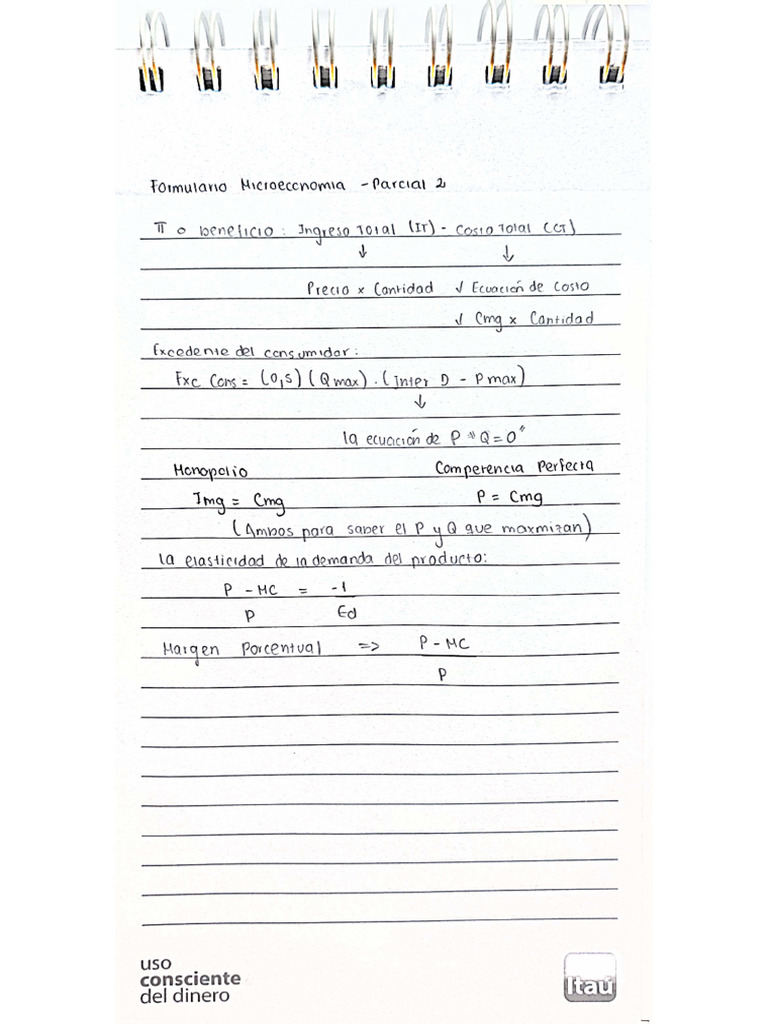 Formulario Microeconomia - Parcial 2
π o beneficio: Ingreso Total (IT) - Costo Total (CT)
↓ ↓
Precio x Cantidad ✓ Ecuación de Costo
✓ Cmg x Cantidad
Excedente del consumidor:
Exc Cons = (0,5) (Qmax) . (Inter D - Pmax)
↓
la ecuación de P "Q=0"
Monopolio Competencia Perfecta
Img = Cmg P = Cmg
(Ambos para saber el P y Q que maxmizan)
La elasticidad de la demanda del producto:
P - MC = -1
P Ed
Margen Porcentual => P - MC
P
uso
consciente
del dinero
Itaú